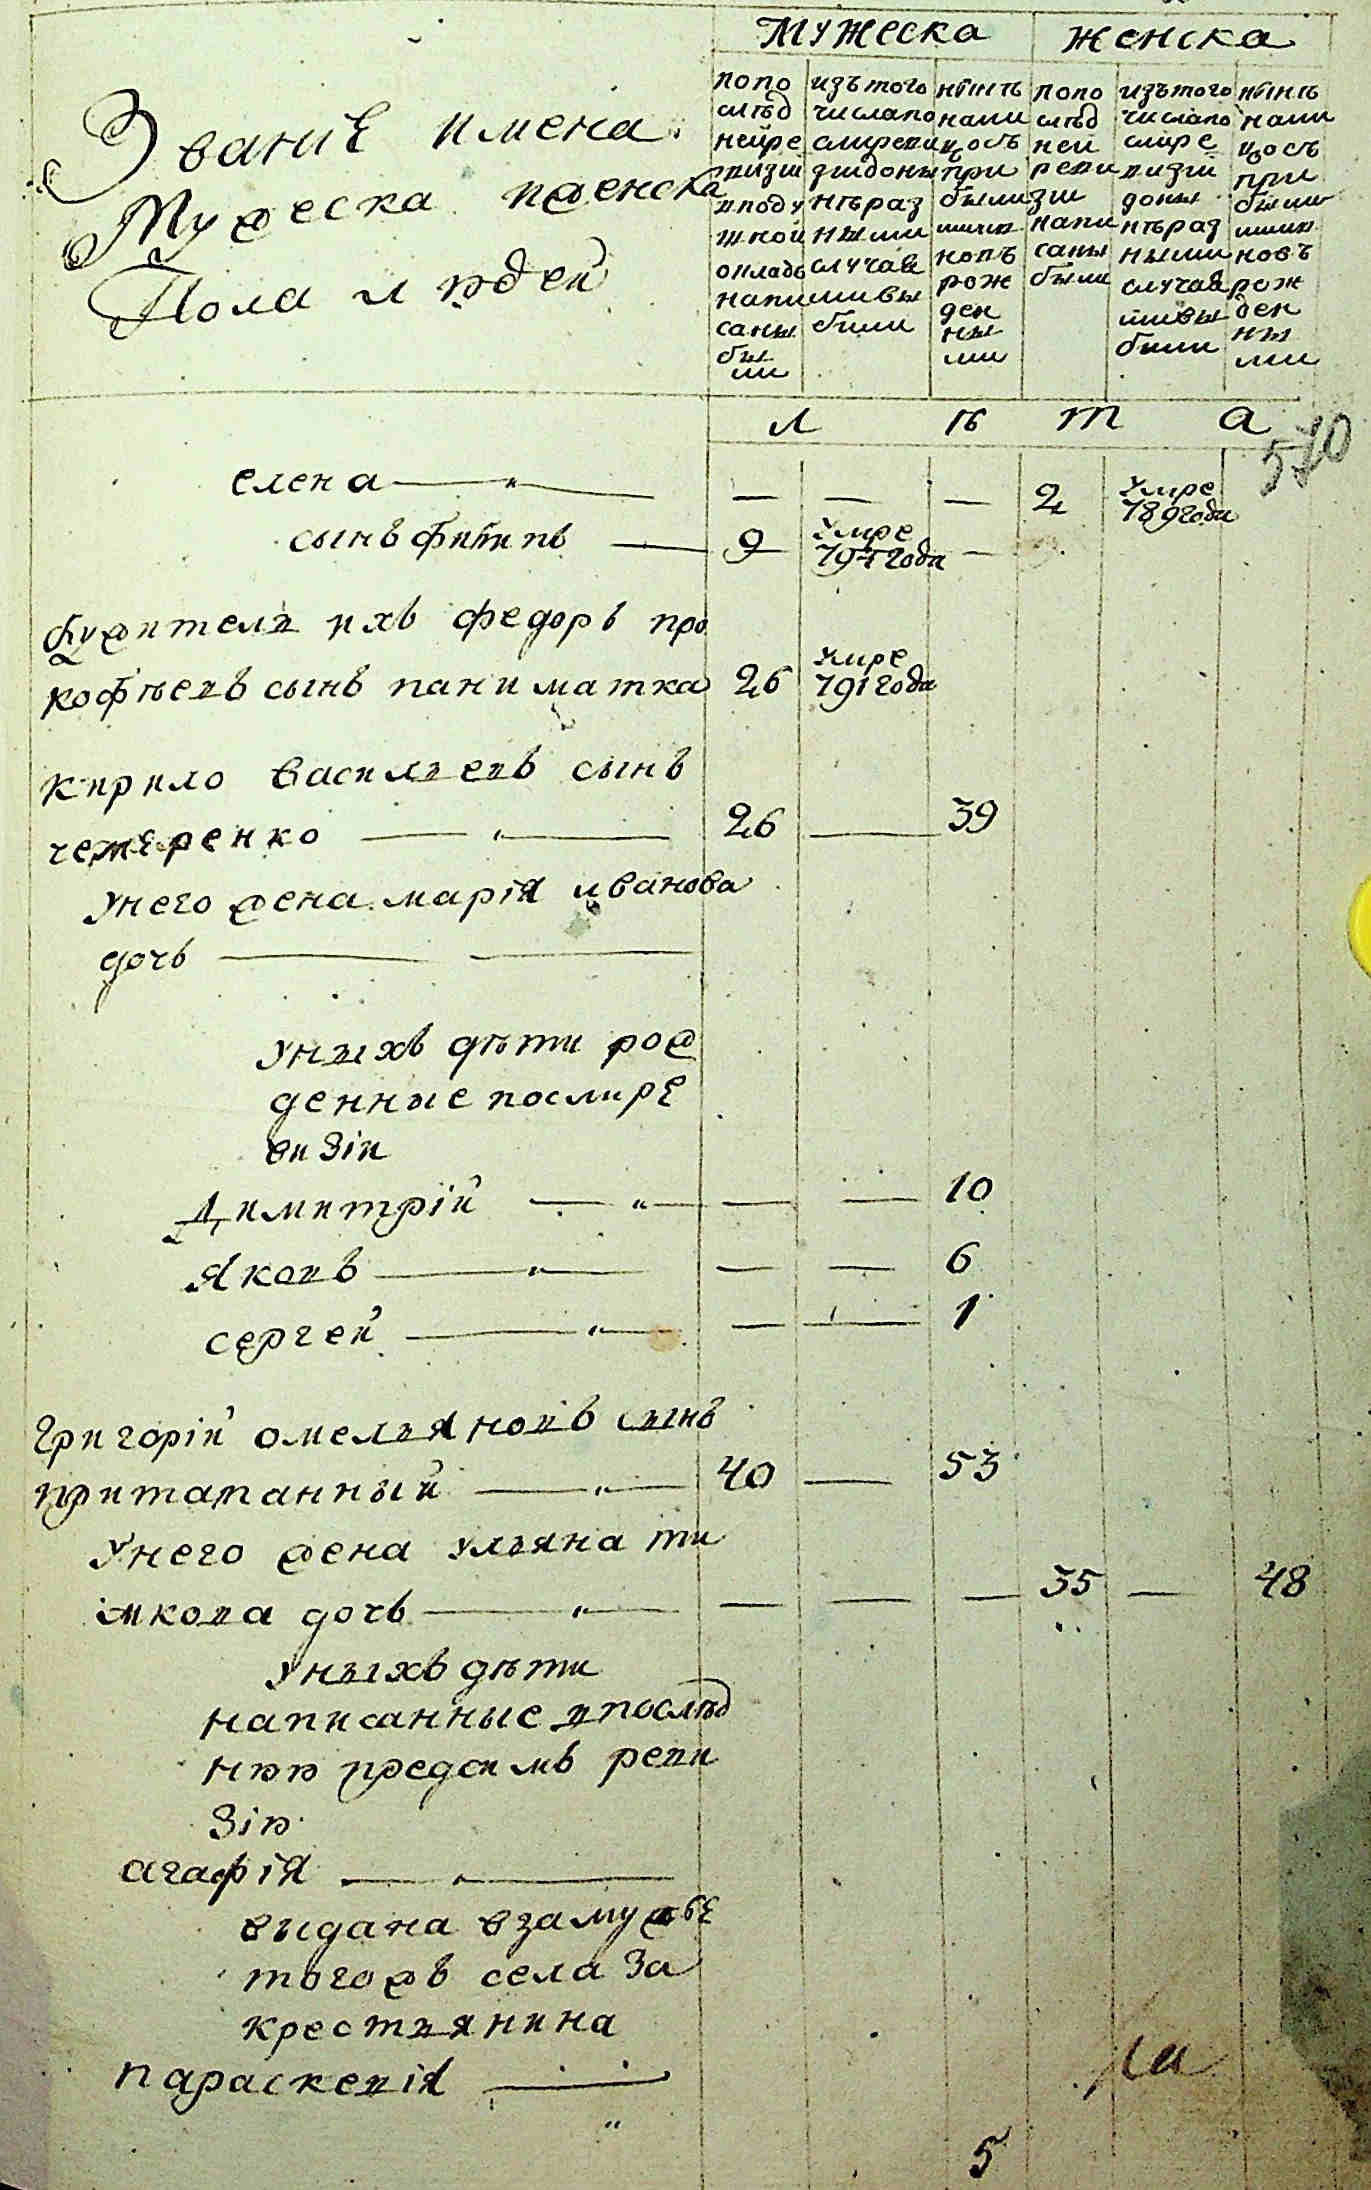 Мужеска Женска
Званiе имена
Мужеска иженска
Пола людей
попо
слѣд
ней ре
визiи
иподу
шной
окладъ
напи
саны
бы
ли
изъ того
числапо
слѣ
нѣ раз
ными
случая
ми вы
были
нынѣ
нали
цосъ
при
были
новъ
рож
ден
ны
ми
попо
слѣд
ней
реви
зiи
напи
саны
были
изъ того
числапо
визiи
доны
нѣ раз
ными
случая
ми вы
были
нынѣ
нали
цосъ
при
были
новъ
рож
ден
ны
ми
л ѣ т а
570
елена — „ — — — — 2 Умре 789 года
сынъ Филипъ — 9 Умре 795 года —
Служители ихъ Федоръ про
кофѣевъ сынъ паниматка 26 Умре 791 года
Кирило Васильевъ сынъ
— „ — 26 — 39
Унего жена марiя иванова
дочь —
Уныхъ дѣти рож
денные послире
визiи
Димитрiй — „ — — — 10
Яковъ — „ — — — 6
сергей — „ — — — 1
Григорiй омельяновъ сынъ
притатанный — „ — 40 — 53
Унего жена ульяна ти
мкова дочь — „ — — — — 35 — 48
Уныхъ дѣти
написанные впослѣд
нюю предсимъ реви
зiю
агафiя —
выдана взамужье
тогожъ села за
крестьянина
Параскевiя —
„
5